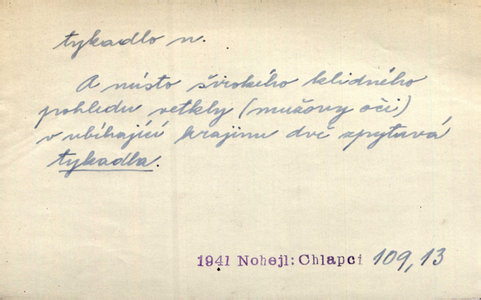 tykadlo n.
A místo širokého klidného
pohledu vetkly (mužovy oči)
v ubíhající krajinu dvě zpytavá
tykadla.
1941 Nohejl: Chlapci 109,13